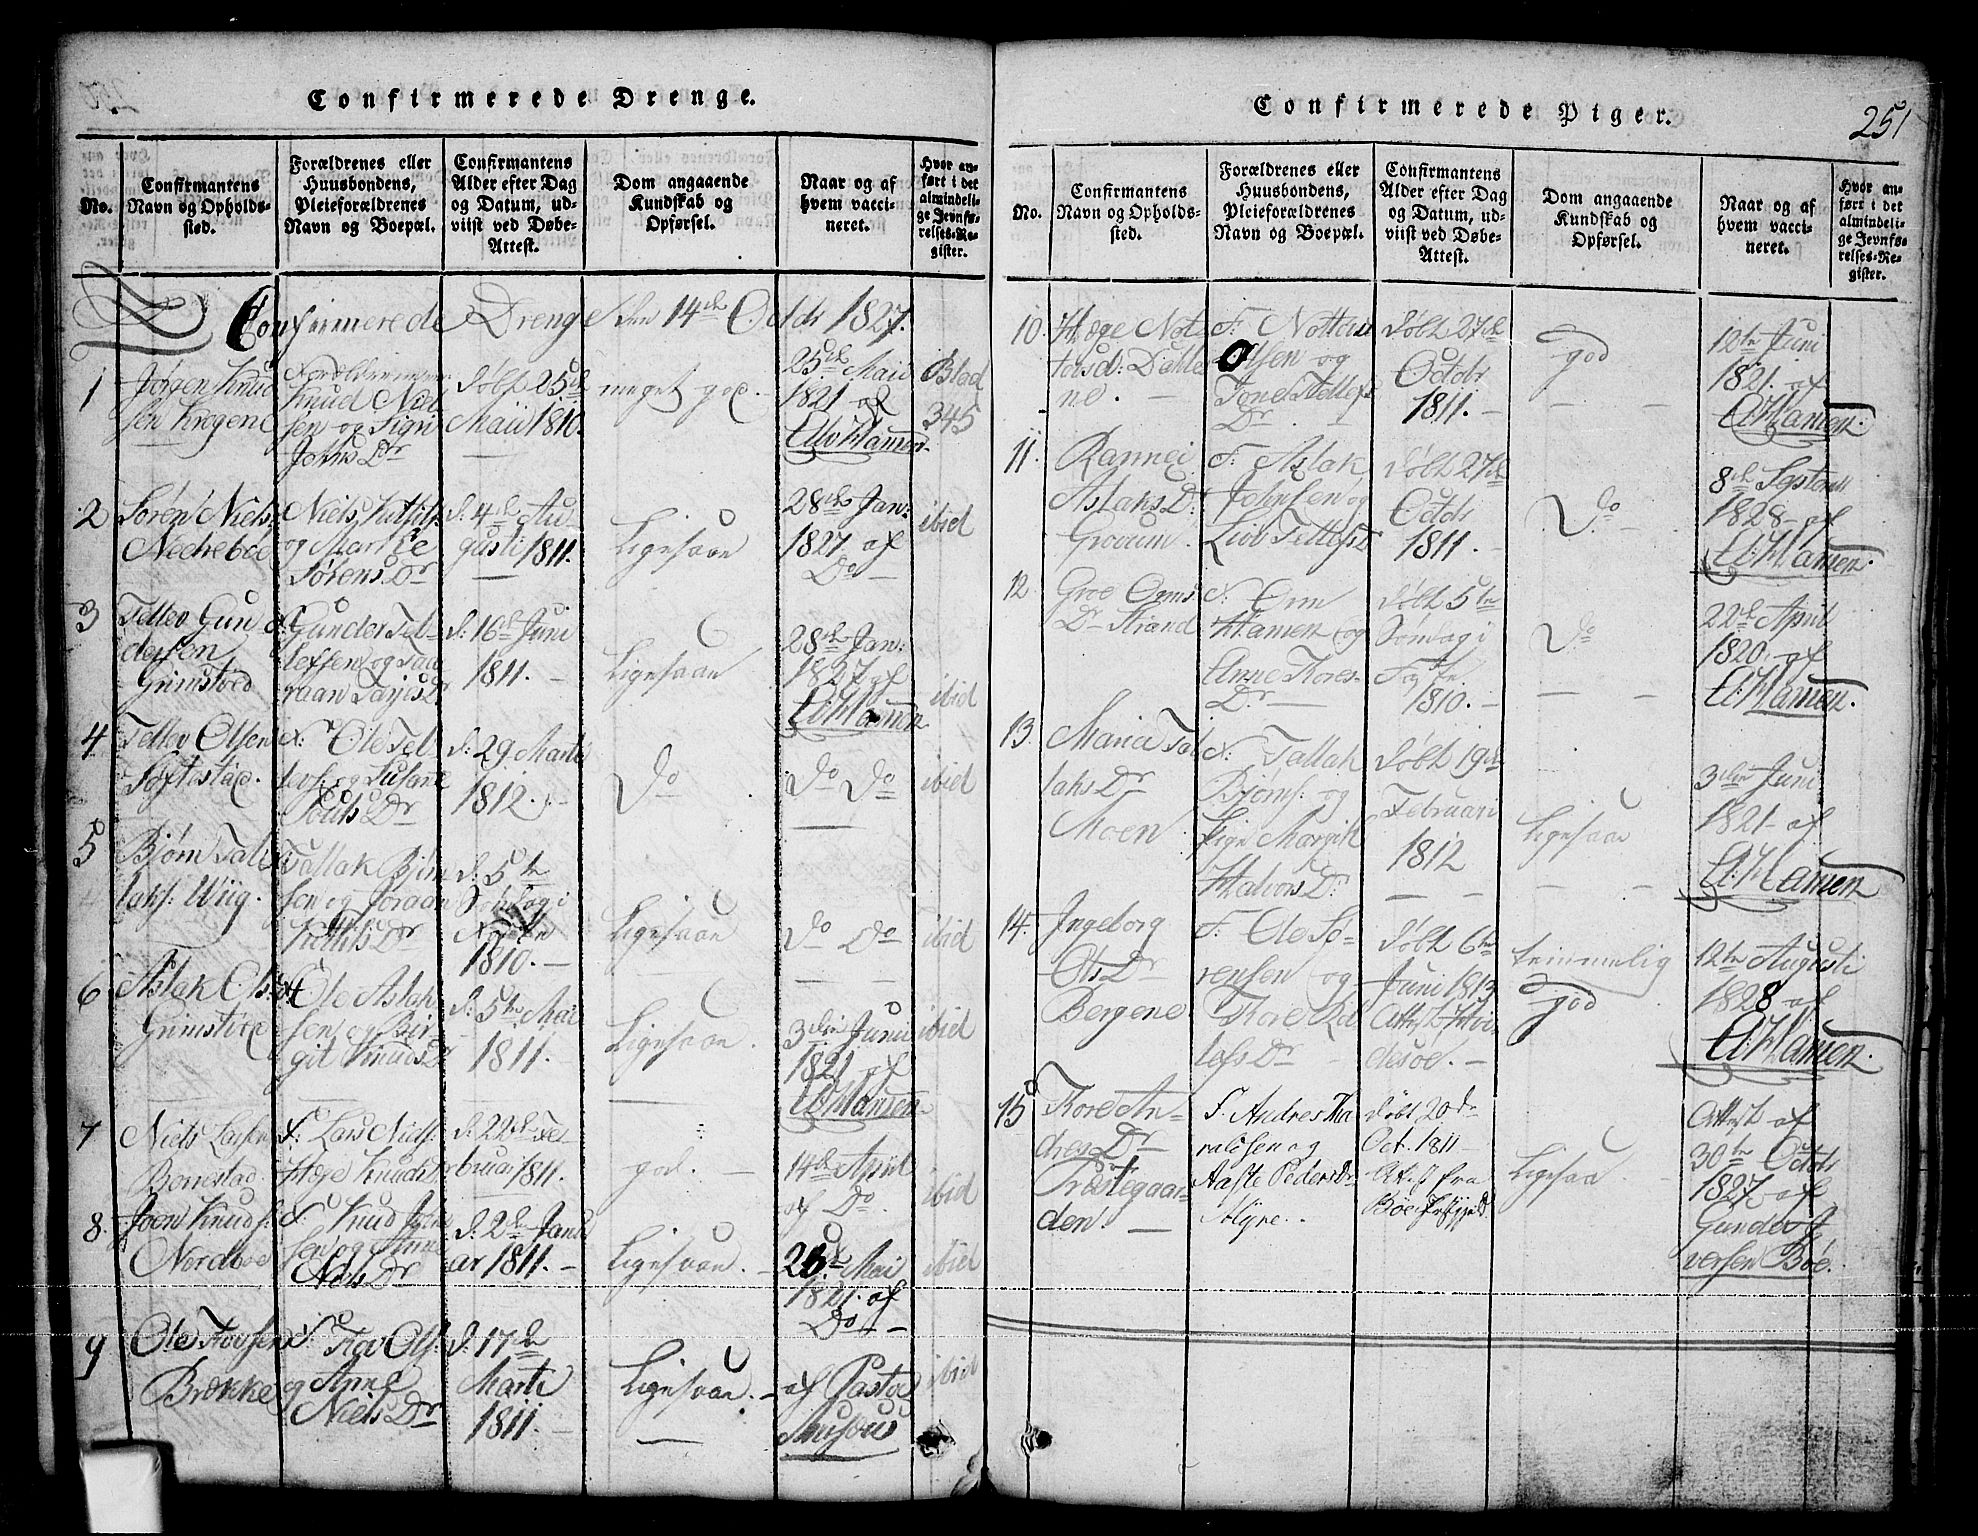 Confirmerede Drenge.
No.
Confirmantens
Navn og Opholds-
sted.
Forældrenes eller
Huusbondens,
Pleieforældrenes
Navn og Boepæl.
Confirmantens
Alder efter Dag
og Datum, ud-
viist ved Døbe-
Attest.
Dom angaaende
Kundskab og
Opførsel.
Naar og af
hvem vacci-
neret.
Hvor an-
ført i det
almindeli-
ge Jevnfø-
relses-Re-
gister.
Confirmerede Drenge den 14de Octbr 1827.
1
Jørgen Knud
sen Kregene
Forældrene
Knud Niel
sen og Sigri
Johns Dr
Døbt 25de
Maii 1810.
meget god.
25de Maii
1821 af
A Hansen
Blad
345
2
Søren Niels.
Nechebøe
Niels Kittils
og Marthe
Sørens Dr
D. 4de Au
gusti 1811.
Ligesaa
28de Jan:
1827 af
Do
ibid
3
Tellev Gun
dersen
Grimstved
F. Gunder Tel-
lefsen og Taa
raan Tarjes Dr
D. 16de Juni
1811.
Ligesaa
28de Jan:
1827 af
A: Hansen
ibid
4
Tellev Olsen
Søftestad.
F. Ole Tel
levs. og Susane
Pouls Dr
D. 29 Marti
1812.
Do
Do Do
ibid
5
Bjørn Tal
laks: Wiig.
F. Tallak Bjørn
sen og Joraan
Kittils Dr
D. 5te
Søndag i
Fasten
1810.
Ligesaa
Do Do
ibid
6
Aslak Ols:
Grimstvet
F. Ole Aslak
sen og Bir
git Knuds Dr
D. 5te Mai
1811.
Ligesaa.
3die Juni
1821 af
A Hansen
ibid
7
Niels Larsen
Bonestad
F. Lars Niels.
Hæge Knuds Dr
D. 22de Fe
bruar 1811.
god.
14de April
af Do.
ibid
8.
Joen Knuds:
Nordbøe
F. Knud
sen og Anne
Niels Dr
D. 2de Janu
ar 1811.
Ligesaa.
26de Mai
1821. af
Do
ibid
9
Ole Tovsen
Brekke
F. Tov Ols.
og Anne
Niels Dr
D. 17de
Marti
1811.
Ligesaa.
af Pastor

ibid
Confirmerede Piger.
251
No.
Confirmantens
Navn og Opholds-
sted.
Forældrenes eller
Huusbondens,
Pleieforældrenes
Navn og Boepæl.
Confirmantens
Alder efter Dag
og Datum, ud-
viist ved Døbe-
Attest.
Dom angaaende
Kundskab og
Opførsel.
Naar og af
hvem vacci-
neret.
Hvor an-
ført i det
almindeli-
ge Jevnfø-
relses-Re-
gister.
10.
Hæge Not
tovsd: Dahle
ne.
F. Nottov
Olsen og
Tone Tellefs
Dr.
Døbt 27de
Octbr
1811.
god
12te Juni
1821. af
A Hansen.
11.
Rannei
Aslaks D.
Grovum
F. Aslak
Johnsen og
Liv Tellefs D
Døbt 27de
Octbr
1811.
Do
8de Septembr
1828 af
A: Hansen.
12.
Groe Orms
Dr Strand
F. Orm
Hansen og
Anne Thores
Dr.
Døbt 5te
Søndag i
Faste
1810.
Do
22de April
1820. af
A: Hansen.
13.
Maria Tal
laks Dr
Moen
F. Tallak
Bjørns. og
Margith
Halvors Dr
Døbt 19de
Februari
1812
Ligesaa
3die Juni
1821 af
A: Hansen
14.
Ingeborg
Ols Dr
Bergene
F. Ole Sø-
rensen og
Thore
lefs Dr
Døbt 6te
Juni 1813
Attest
desøe.
temmelig
god
12te Augusti
1828 af
A: Hansen.
15
Thore An-
dres Dr
Præstegaar
den.
F. Andres Ha
raldsen og
Aaste Peders Dr
Myre.
Døbt 20de
Oct. 1811
Attest fra
Bøe
Ligesaa
Attest af
30te Octbr
1827 af
Gunder I
versen Bøe.